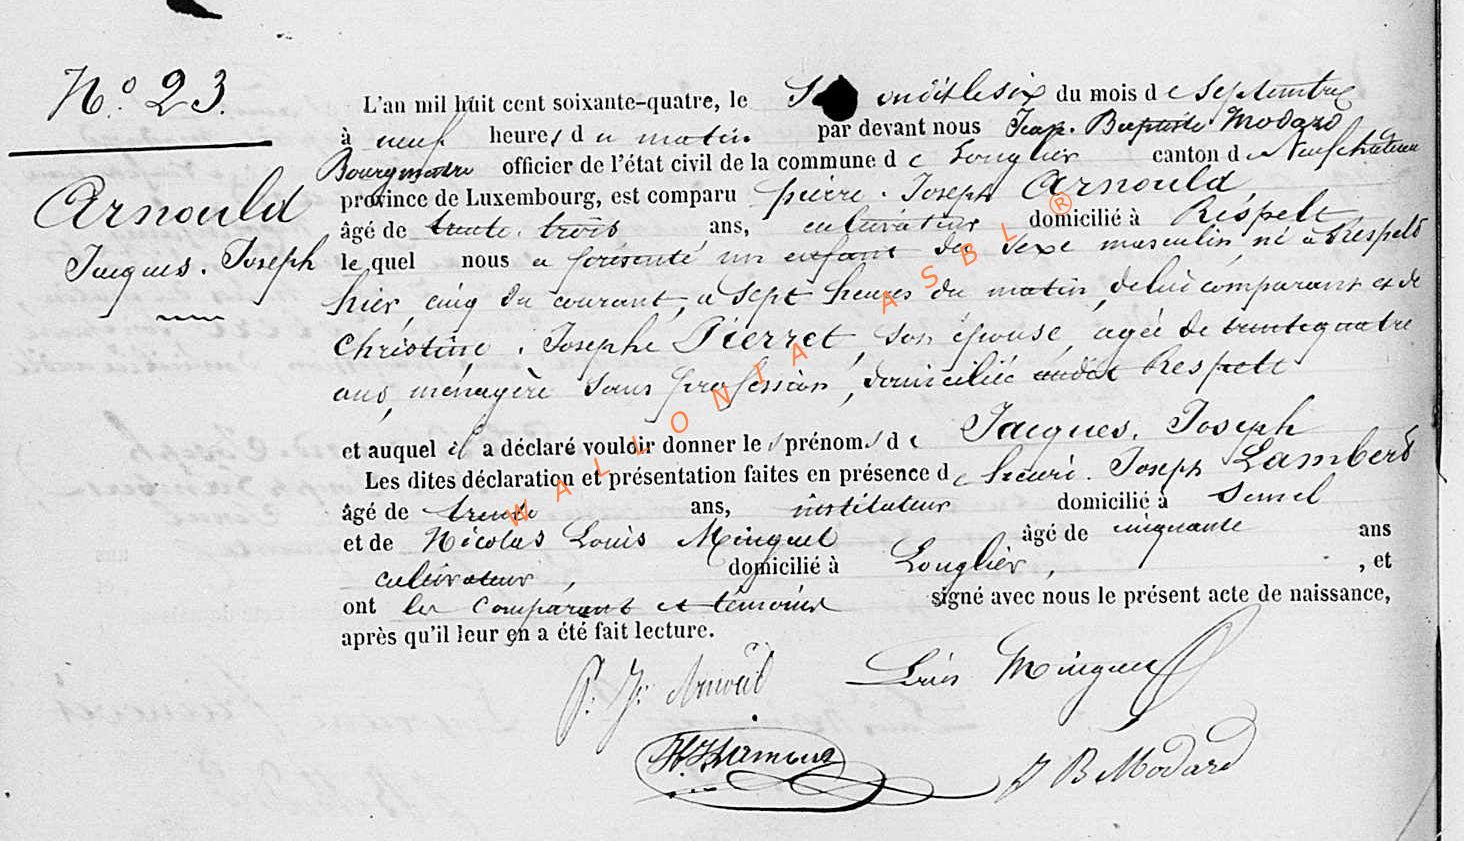 N.° 23.
Arnould
Jacques. Joseph
L'an mil huit cent soixante-quatre, le six du mois de Septembre
à neuf heures du matin par devant nous Jean-Baptiste Modard
Bourgmestre officier de l'état civil de la commune de Longlier canton de Neufchateau
province de Luxembourg, est comparu pierre. Joseph Arnould
âgé de trente. trois ans, cultivateur domicilié à Respelt
lequel nous a présenté un enfant du sexe masculin né à Respelt
hier, cinq du courant, a sept heures du matin, de lui comparant et de
Christine. Josephe Pierret, son épouse, agée de trentequatre
ans, ménagère sans profession, domiciliée audit Respelt
et auquel il a déclaré vouloir donner les prénoms de Jacques. Joseph
Les dites déclaration et présentation faites en présence de henri. Joseph Lambert
âgé de trente ans, instituteur domicilié à Semel
et de Nicolas Louis Minguet âgé de cinquante ans
cultivateur, domicilié à Longlier, , et
ont les comparant et témoins signé avec nous le présent acte de naissance,
après qu'il leur en a été fait lecture.
P. J. Arnould Louis Minguet
H. J. Lambert J B Modard
WALLONIA ASBL ®